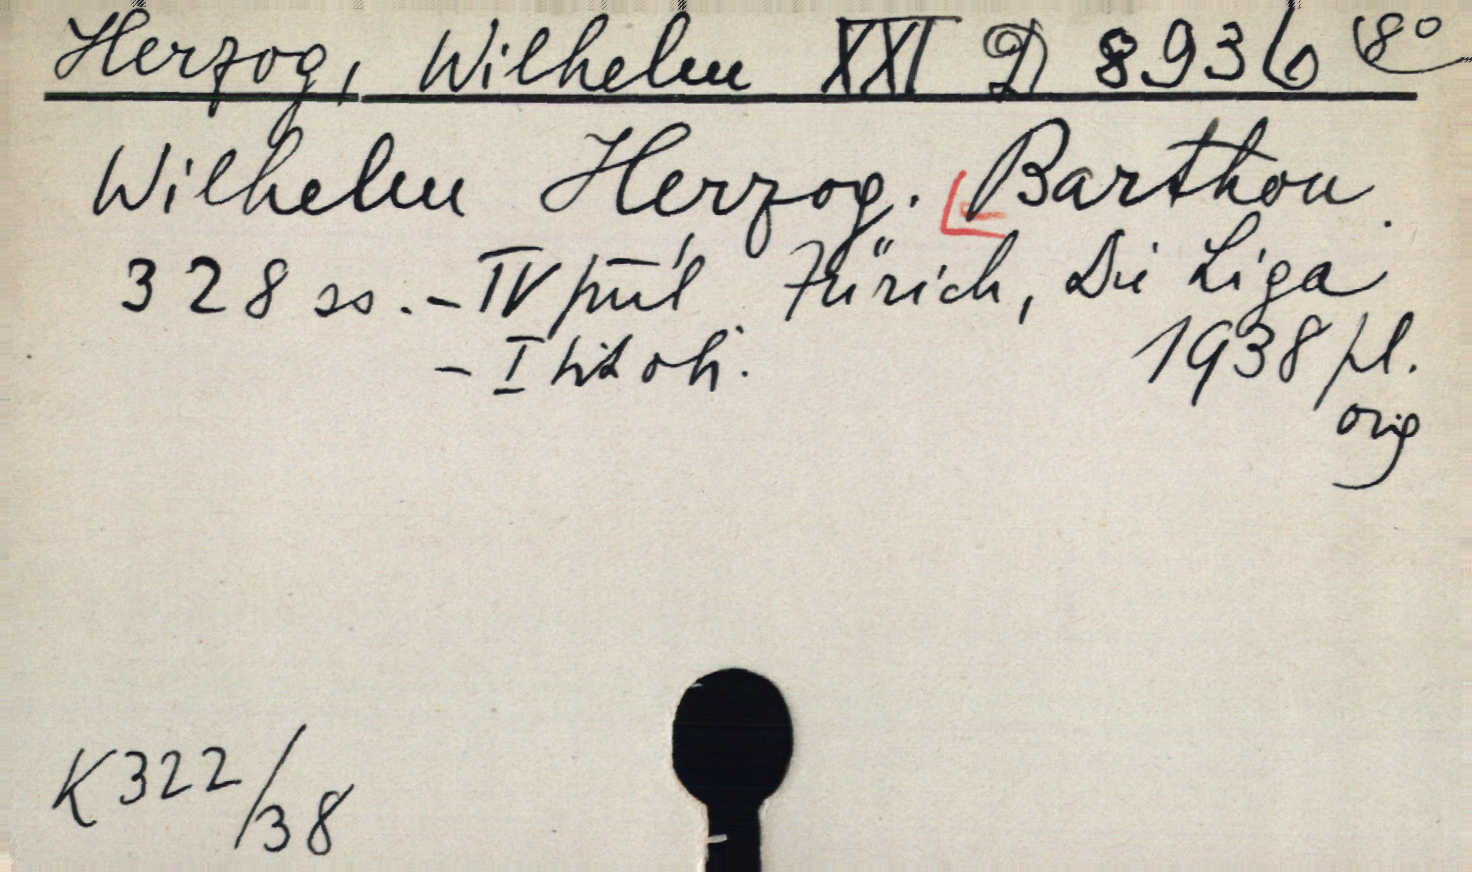 Herzog, Wilhelm XXI D 8936 8°
Wilhelm Herzog. Barthou.
328 ss. - IV příl Zürich, Die Liga
- I tit ob. 1938 pl.
orig
K 322/38